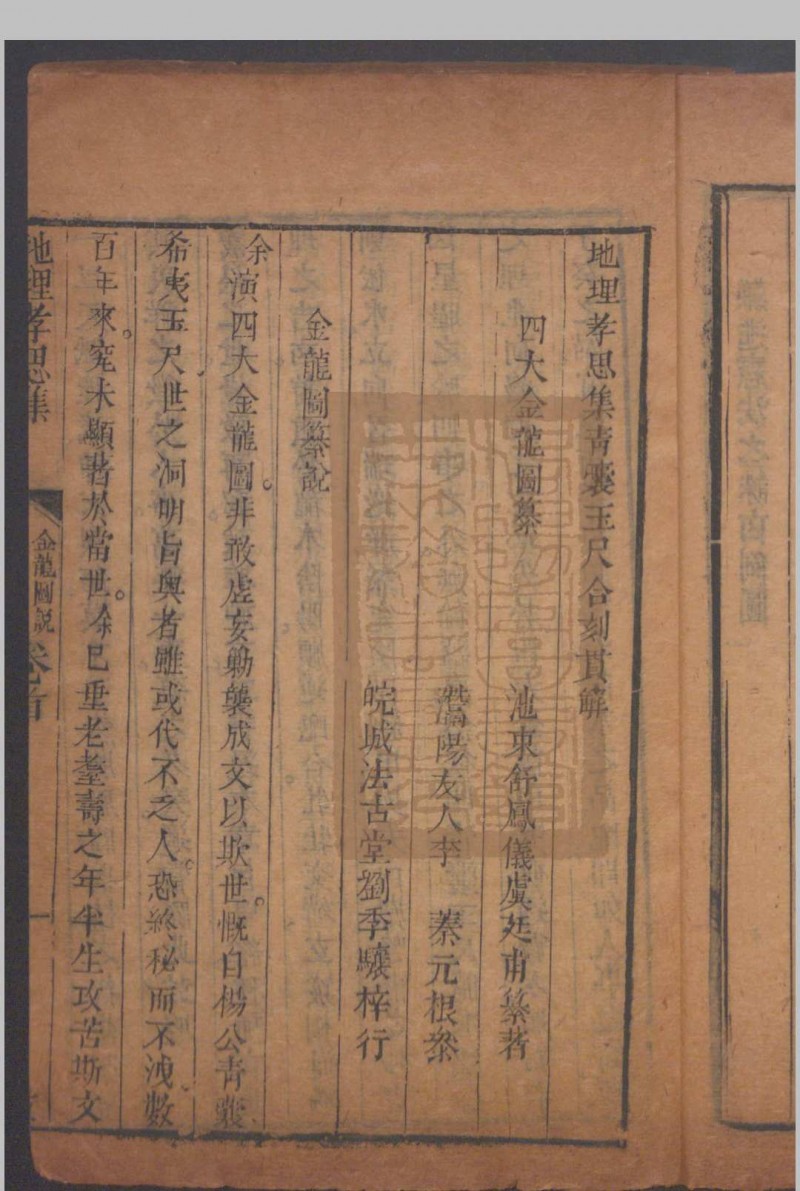 地理孝思集青囊玉尺合刻貫解
四大金龍圖纂 池東舒鳳儀虞廷甫纂著
灊陽友人李 蓁元根叅
皖城法古堂劉季驤梓行
金龍圖纂說
余演四大金龍圖。非敢虛妄勦襲成文以欺世。慨自楊公青囊
希夷玉尺世之洞明旨奧者雖或代不乏人。恐終秘而不洩數
百年來。究未顯著於當世。余已垂老耋壽之年半生攻苦斯文
地理孝思集 金龍圖說 卷首 一